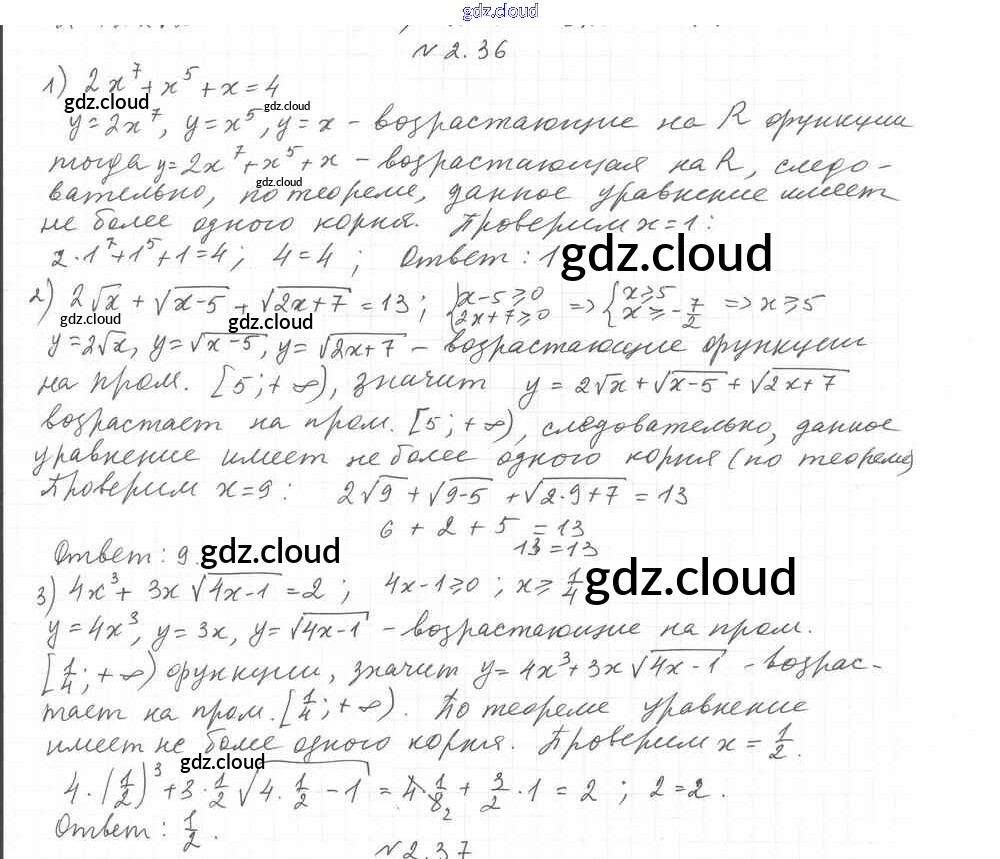 gdz.cloud
N 2.36
1) 2x⁷ + x⁵ + x = 4
gdz.cloud gdz.cloud
y = 2x⁷, y = x⁵, y = x – возрастающие на R функции
тогда y = 2x⁷ + x⁵ + x – возрастающая на R, следо-
gdz.cloud
вательно, по теореме, данное уравнение имеет
не более одного корня. Проверим x = 1:
2·1⁷ + 1⁵ + 1 = 4; 4 = 4; Ответ: 1
gdz.cloud
2) 2√x + √(x-5) + √(2x+7) = 13; {x-5 ≥ 0 2x+7 ≥ 0 => {x ≥ 5 x ≥ -7/2 => x ≥ 5
gdz.cloud gdz.cloud
y = 2√x, y = √(x-5), y = √(2x+7) – возрастающие функции
на пром. [5; +∞), значит y = 2√x + √(x-5) + √(2x+7)
возрастает на пром. [5; +∞), следовательно, данное
уравнение имеет не более одного корня (по теореме)
Проверим x = 9: 2√9 + √(9-5) + √(2·9+7) = 13
6 + 2 + 5 = 13
13 = 13
Ответ: 9.
gdz.cloud
3) 4x³ + 3x√(4x-1) = 2; 4x-1 ≥ 0; x ≥ 1/4
gdz.cloud
y = 4x³, y = 3x, y = √(4x-1) – возрастающие на пром.
[1/4; +∞) функции, значит y = 4x³ + 3x√(4x-1) - возрас-
тает на пром. [1/4; +∞). По теореме уравнение
имеет не более одного корня. Проверим x = 1/2.
gdz.cloud
4·(1/2)³ + 3·1/2√(4·1/2 - 1) = 4·1/8₂ + 3/2·1 = 2; 2 = 2.
Ответ: 1/2.
N 2.37